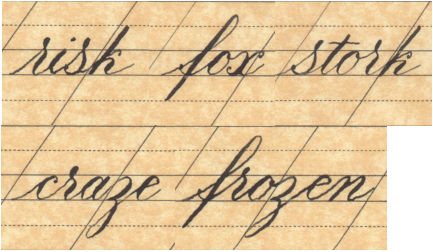 risk fox stork
craze frozen